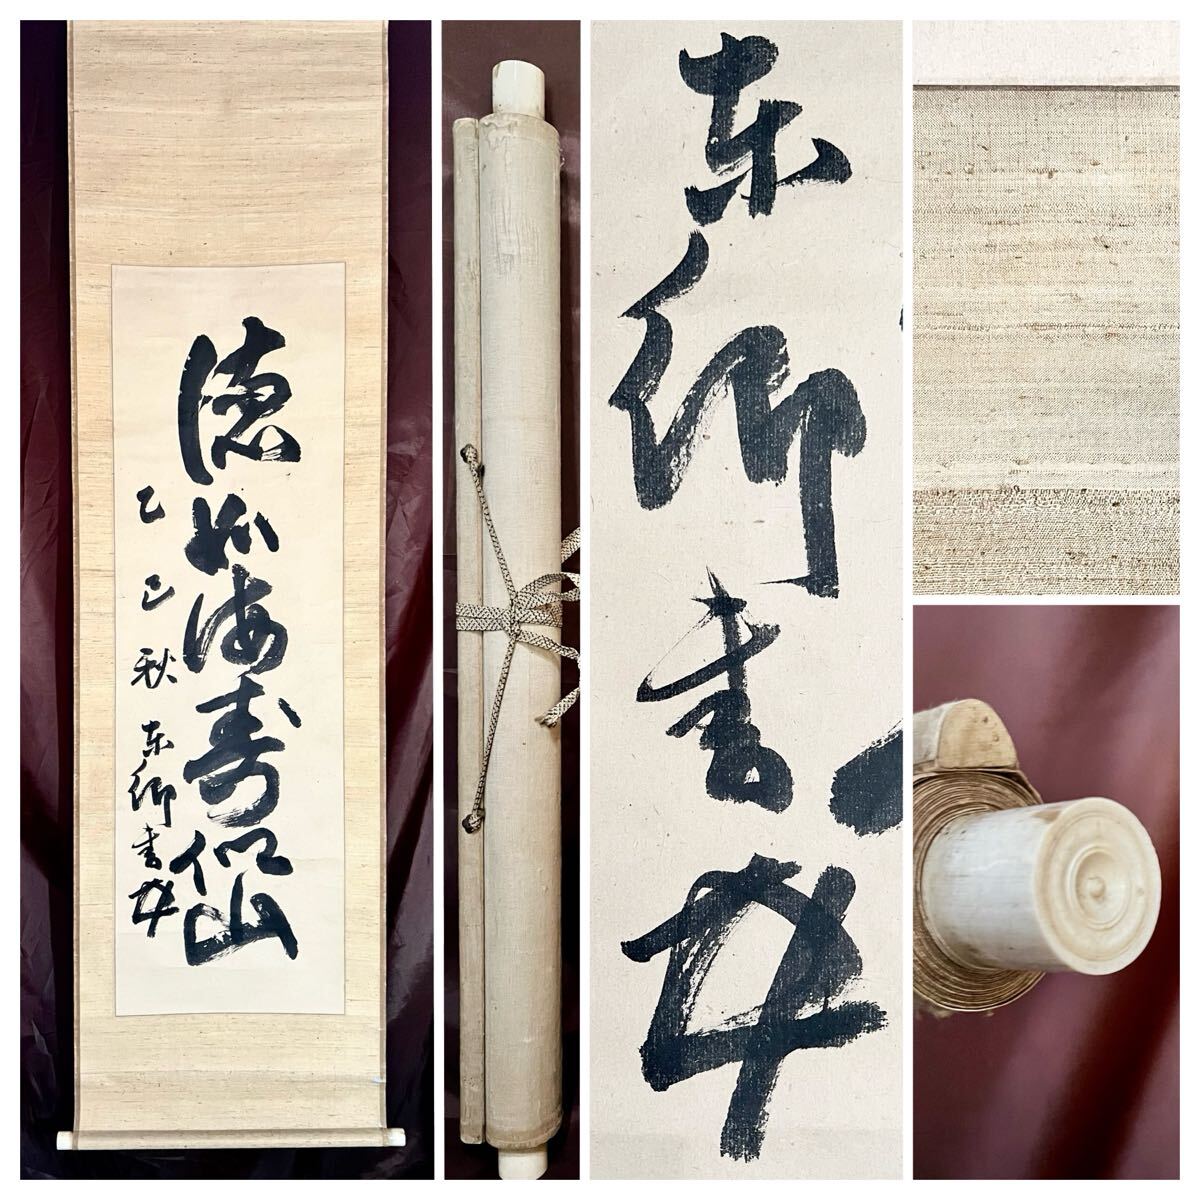 徳如海寿似山
乙巳秋 東卿書
東卿書